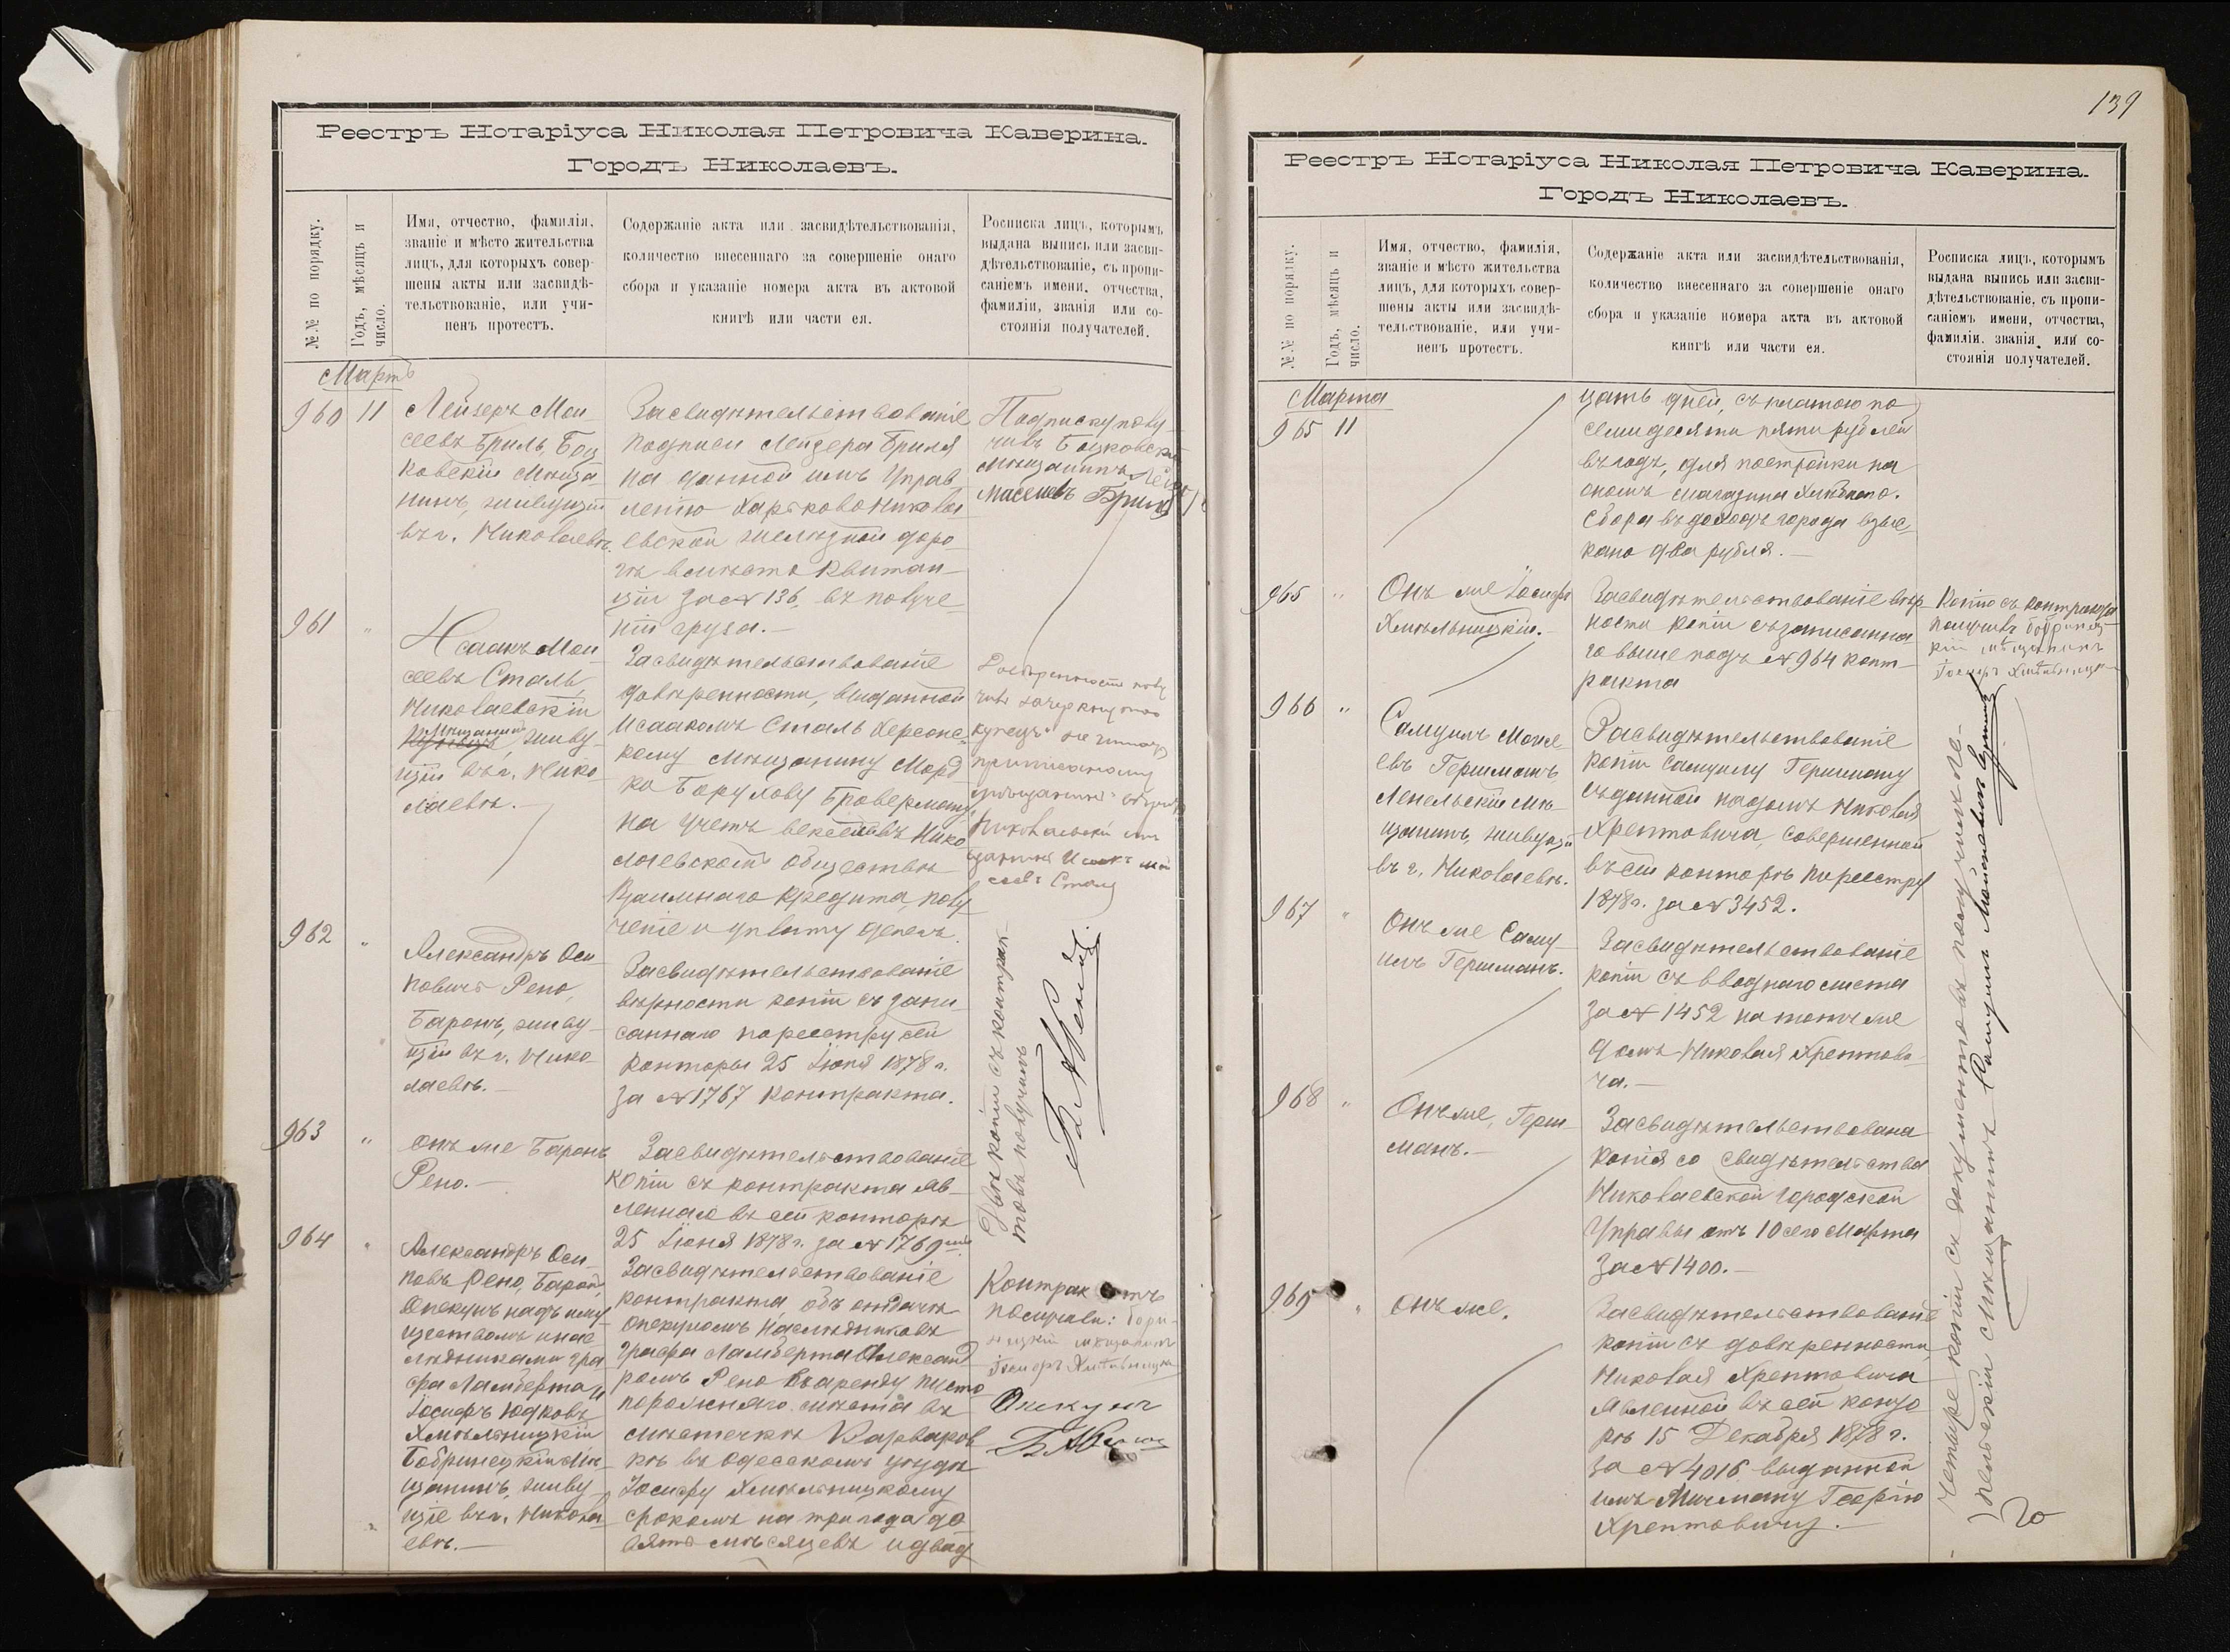 Реестръ Нотаріуса Николая Петровича Каверина.
Городъ Николаевъ.
№№ по порядку.
Годъ, мѣсяцъ и
число.
Имя, отчество, фамилія,
званіе и мѣсто жительства
лицъ, для которыхъ совер-
шены акты или засвидѣ-
тельствованіе, или учи-
ненъ протестъ.
Содержаніе акта или засвидѣтельствованія,
количество внесеннаго за совершеніе онаго
сбора и указаніе номера акта въ актовой
книгѣ или части ея.
Росписка лицъ, которымъ
выдана выпись или засви-
дѣтельствованіе, съ пропи-
саніемъ имени, отчества,
фамиліи, званія или со-
стоянія получателей.
Мартъ
960
11
Лейзеръ Мои
сеевъ Бриль, Боц
ковскій Мѣща
нинъ, живущій
въ г. Николаевѣ.
Засвидѣтельствованіе
подписи Лейзера Бриля
на данной имъ Управ
ленію Харьково Никола
евской желѣзной доро
гѣ вмѣсто квитан
ціи за № 136, въ получе
ніи груза.—
Подписку полу
чивъ Боцковскій
Мѣщанинъ
961
"
Исаакъ Мои
сеевъ Сталь,
Николаевскій
мѣщанинъ
купецъ, живу
щій въ г. Нико
лаевѣ.—
Засвидѣтельствованіе
довѣренности, выданной
Исаакомъ Сталь Херсонс
кому Мѣщанину Морд
ко Борулову Броверману,
на учетъ векселевъ Нико
лаевскомъ Обществѣ
Взаимнаго Кредита, полу
ченіе и уплату денегъ.
Довѣренность полу
чивъ зачеркнутое
купецъ не читать
приписанному
мѣщанинъ вѣрить
Николаевскій мѣ
щанинъ Исаакъ Мои
сеевъ Сталь
962
"
Александръ Оси
повичъ Рено,
Баронъ, живу
щій въ г. Нико
лаевѣ.—
Засвидѣтельствованіе
вѣрности копіи съ запи
саннаго по реестру сей
конторы 25 Іюня 1878 г.
за № 1767 контракта.
Двѣ копіи съ контрак-
товъ получилъ
963
"
Онъ же Баронъ
Рено.—
Засвидѣтельствованіе
копіи съ контракта яв
леннаго въ сей конторѣ
25 Іюня 1878 г. за № 1769
964
"
Александръ Оси
повъ Рено, Баронъ,
Опекунъ надъ иму
ществомъ и нас
лѣдниками гра
фа Ламберта и
Іосифъ Юдковъ
Хмѣльницкій
Бобринецкій Мѣ
щанинъ, живу
щіе въ г. Никола
евѣ.—
Засвидѣтельствованіе
контракта, объ отдачѣ
опекуномъ наслѣдниковъ
графа Ламберта Александ
ромъ Рено въ аренду пусто
порожняго мѣста въ
мѣстечкѣ Варваров
кѣ въ Одесскомъ уѣздѣ
Іосифу Хмѣльницкому
срокомъ на три года де
вять мѣсяцевъ и двад
Контрактъ
получили: Бобри
нецкій мѣщанинъ
Іосифъ Хмѣльницкій
Опекунъ
139
Реестръ Нотаріуса Николая Петровича Каверина.
Городъ Николаевъ.
№№ по порядку.
Годъ, мѣсяцъ и
число.
Имя, отчество, фамилія,
званіе и мѣсто жительства
лицъ, для которыхъ совер-
шены акты или засвидѣ-
тельствованіе, или учи-
ненъ протестъ.
Содержаніе акта или засвидѣтельствованія,
количество внесеннаго за совершеніе онаго
сбора и указаніе номера акта въ актовой
книгѣ или части ея.
Росписка лицъ, которымъ
выдана выпись или засви-
дѣтельствованіе, съ пропи-
саніемъ имени, отчества,
фамиліи, званія, или со-
стоянія получателей.
Марта
965
11
цать дней, съ платою по
семидесяти пяти рублей
въ годъ, для постройки на
ономъ магазина хлѣбнаго.
Сбора въ доходъ города взыс-
кано два рубля.—
965
"
Онъ же Іосифъ
Хмѣльницкій.—
Засвидѣтельствованіе вѣр
ности копіи съ записанна
го выше подъ № 964 конт
ракта
Копію съ контракта
получивъ Бобринец
кій мѣщанинъ
Іосифъ Хмѣльницкій
966
"
Самуилъ Моисе
евъ Гершманъ,
Лепельскій Мѣ
щанинъ, живущій
въ г. Николаевѣ.
Засвидѣтельствованіе
копіи Самуилу Гершману
съ данной на домъ Николая
Хрептовича, совершенной
въ сей конторѣ по реестру
1878 г. за № 3452.
967
"
Онъ же Саму
илъ Гершманъ.
Засвидѣтельствованіе
копіи съ вводнаго листа
за № 1452 на тотъ же
домъ Николая Хрептови
ча.—
968
"
Онъ же, Герш
манъ.—
Засвидѣтельствована
копія со свидѣтельства
Николаевской Городской
Управы отъ 10 сего Марта
за № 1400.—
969
"
Онъ же.
Засвидѣтельствованіе
копіи съ довѣренности,
Николая Хрептовича
явленной въ сей конто
рѣ 15 Декабря 1878 г.
за № 4016 выданной
имъ Мичману Георгію
Хрептовичу.—
Четыре копіи съ документовъ получилъ Ле-
пельскій мѣщанинъ Самуилъ Моисеевичъ